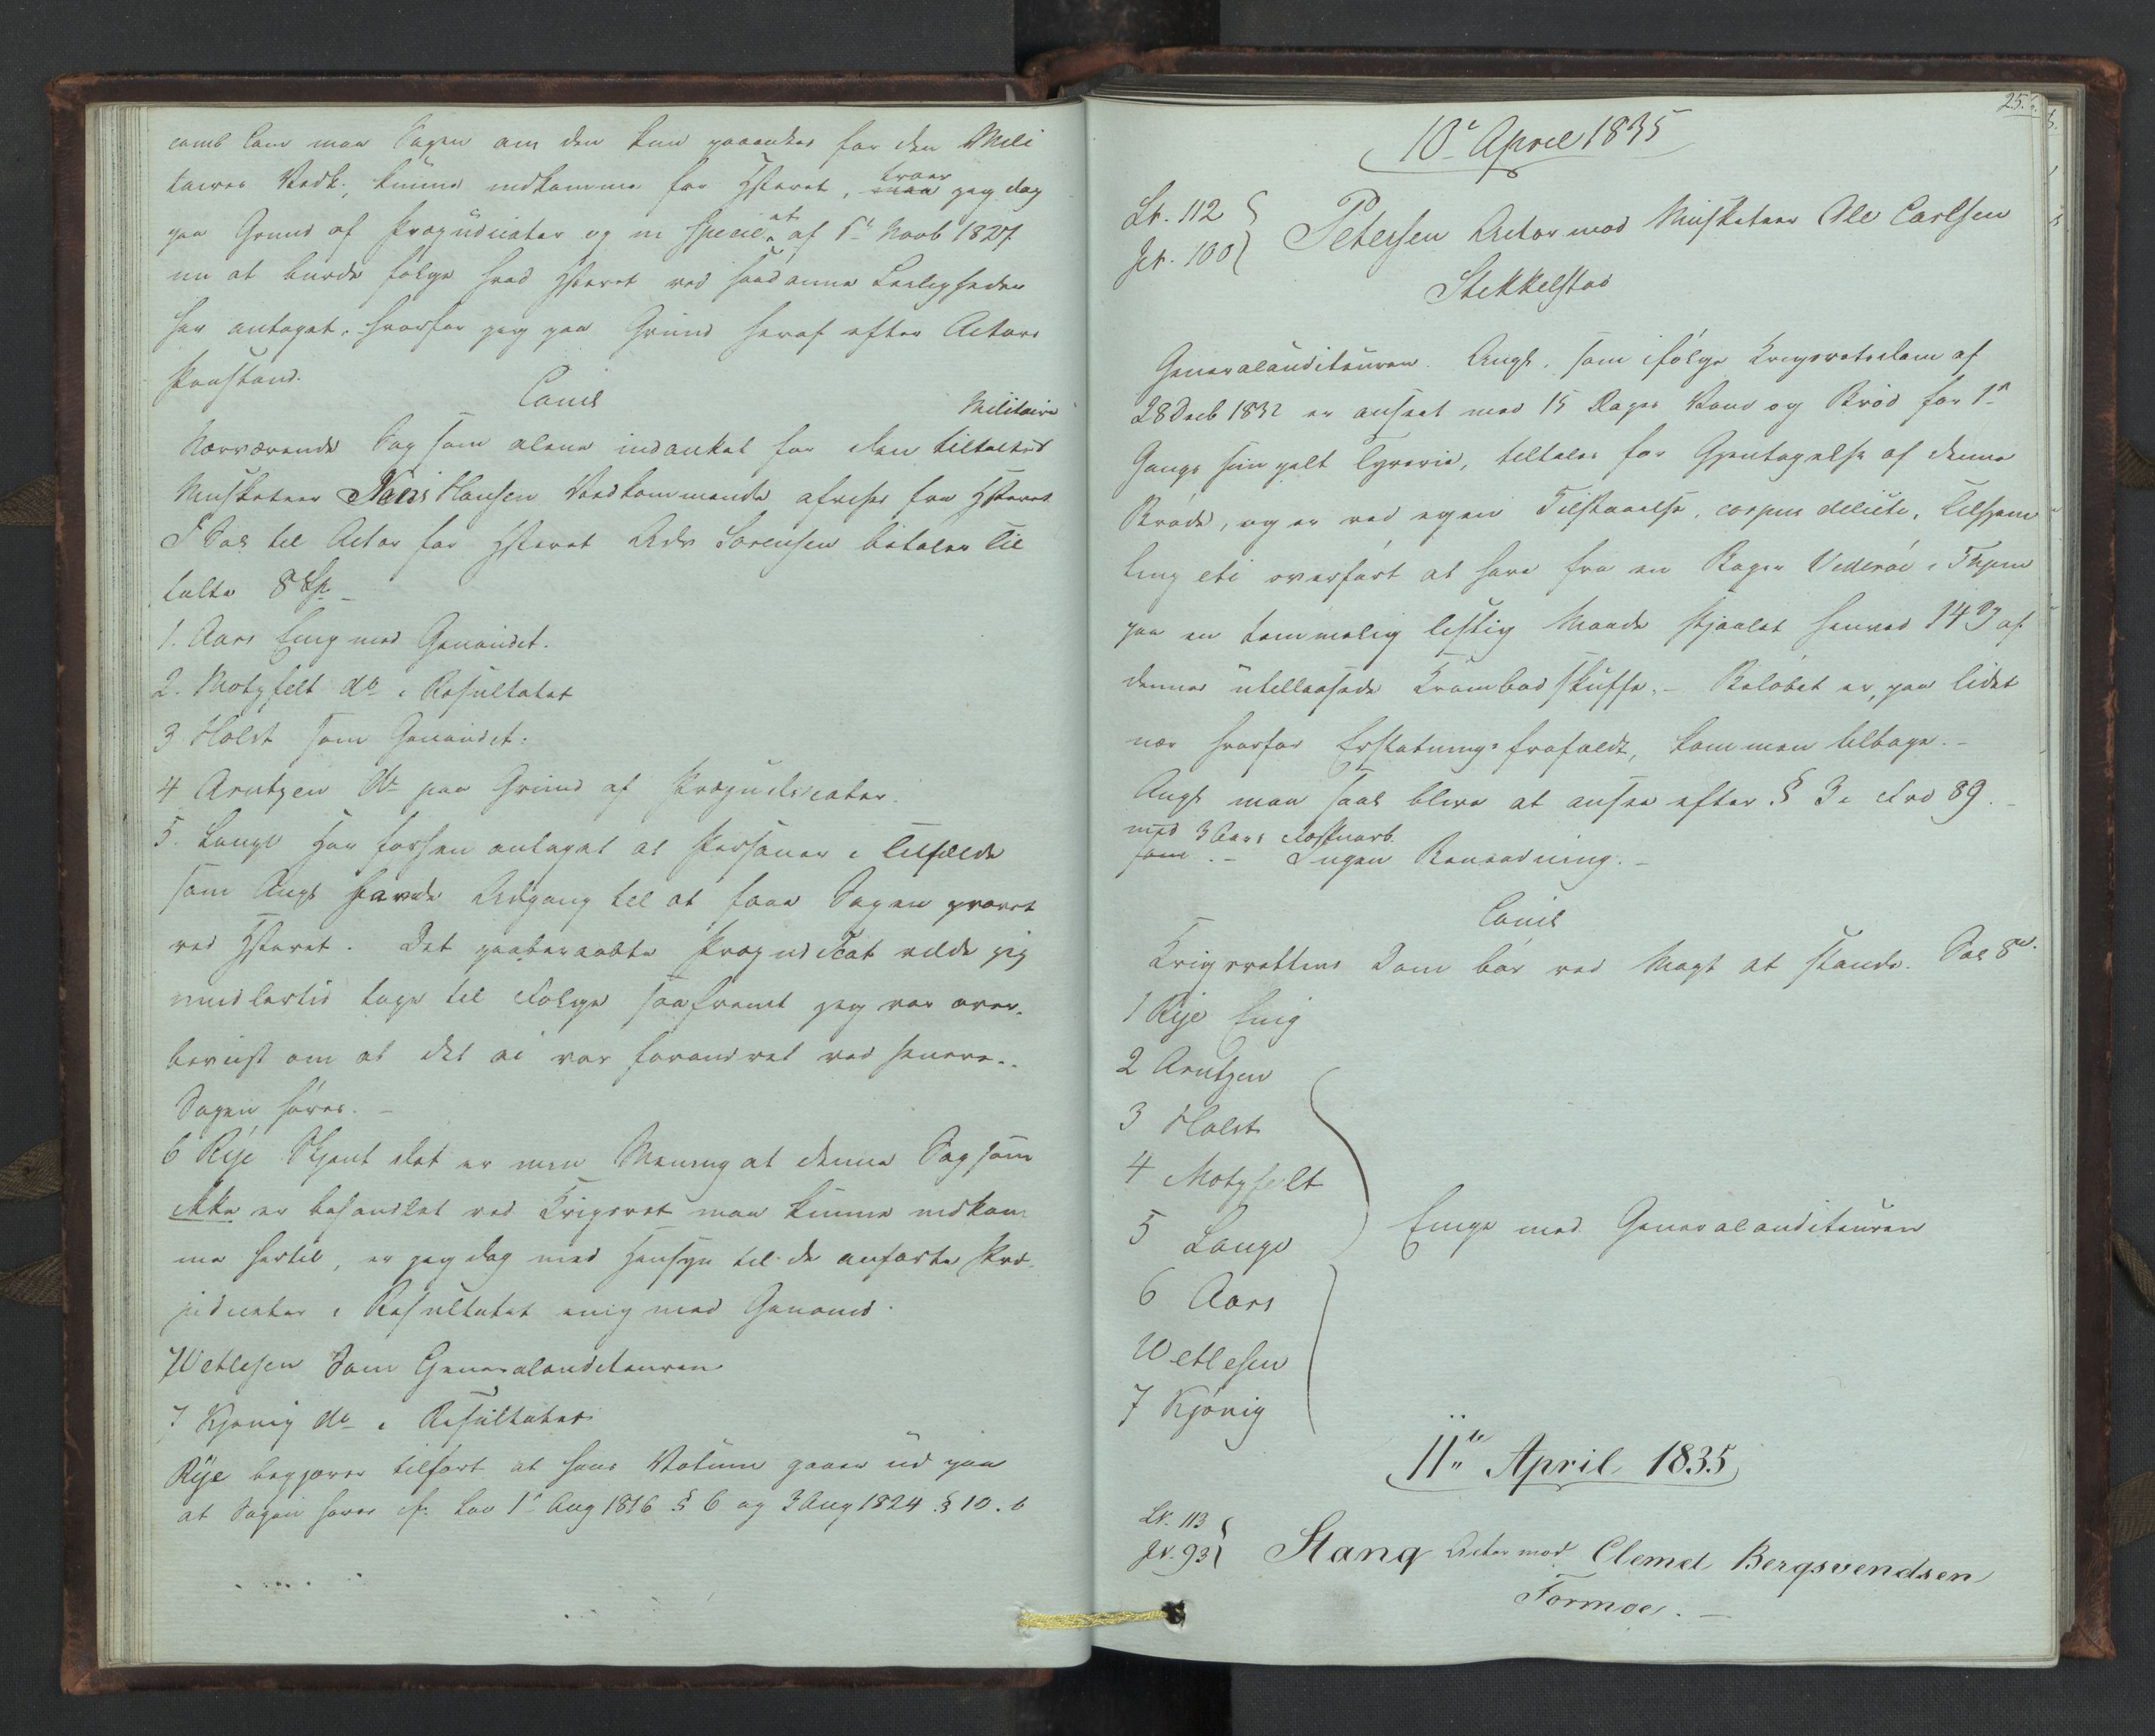 mand som man Sagen om den kun paaankes for den Mili
taires Vedk:, kunne indkomme for HRet, troer jeg dog
paa Grund af Præjudicater og in specie at af 1ste Novb 1827
nu at burde følge hvad HRet ved saadanne Leiligheder
har antaget, hvorfor jeg paa Grund heraf efter Actors
Paastand.
Conil
Nærværende Sag som alene indanket for den tiltalte Militaire
Musketeer Jens Hansen Vedkommende afvises fra HRet
I Sal til Actor for HRet Adv Sørensen betaler Til
talte 8 Sp
1. Aars Enig med Genaudit.
2. Motzfelt do i Resultatet
3 Holst som Genaudit:
4 Arntzen do paa Grund af Præjudicater.
5. Lange Har forhen antaget at Personer i Tilfælde
som Angs havde Adgang til at faae Sagen prøvet
ved HRet. Det paaberaabte Præjudicat vilde jeg
imidlertid tage til Følge saafremt jeg var over-
beviist om at det ei var forandret ved senere..
Sagen høres. -
6 Rije Skjønt det er min Mening at denne Sag som
ikke er behandlet ved Krigsret maa kunne indkom
me hertil, er jeg dog med Hensyn til de anførte Præ-
judicater i Resultatet enig med Genaud.
7 Wetlesen Som Generalauditeuren
7 Kjønig do i Resultatet
Rije begjærer tilført at hans Votum gaaer ud paa
at Sagen høres cf. Lov 1ste Aug 1816 § 6 og 3 Aug 1824 § 10. b
25.
10de April 1835
Lr. 112
Jr. 100
Petersen Actor mod Musketeer Ole Carlsen
Stekkelstad
Generalauditeuren. Angs. som ifølge Krigsretsdom af
28 Decb 1832 er anseet med 15 Dages Vand og Brød for 1ste
Gangs simpelt Tyverie, tiltales for Gjentagelse af denne
Brøde, og er ved egen Tilstaaelse, corpus delicti, Tilhjem
ling etc overført at have fra en Bager Vederøe i Thjem
paa en temmelig listig Maade stjaalet henved 14 af
dennes utillaasede Krambodskuffe. - Beløbet er, paa lidet
nær hvorfor Erstatning frafaldt, kommen tilbage. -
Angs maa saal blive at ansee efter § 3 i Frd 89. -
med 3 Aars Fæstnarb.
Ingen Benaadning. -
Conil
Krigsrettens Dom bør ved Magt at stande. Sal 8
1 Rije Enig
2 Arntzen
3 Holst
4 Motzfelt
5 Lange Enige med Generalauditeuren
6 Aars
Wetlesen
7 Kjønig
11te April 1835
Lr. 113
Jr. 93
Stang Actor mod Clemet Bergsvendsen
Formoe. -